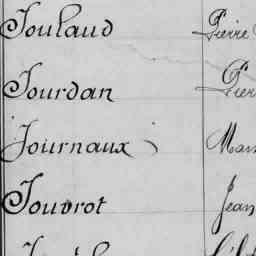 Joulaud Pierre
Jourdan
Journaux
Jouvrot Jean